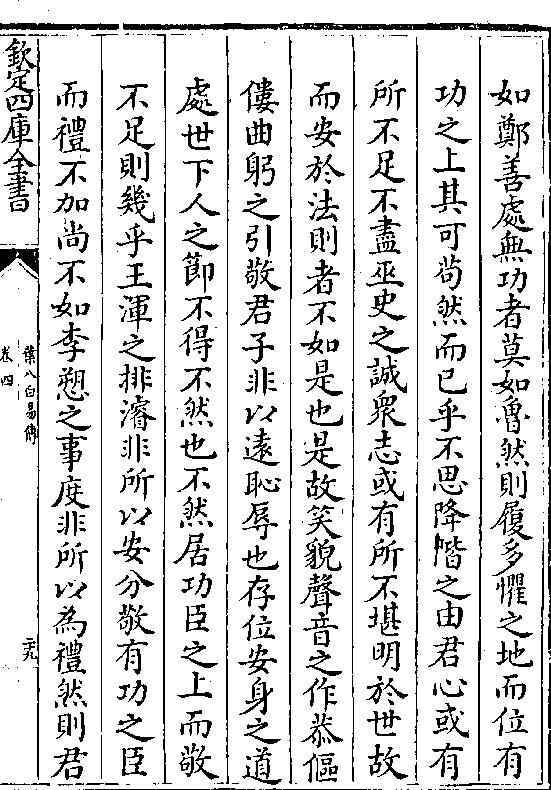 如鄭善處無功者莫如魯然則履多懼之地而位有
功之上其可苟然而已乎不思降階之由君心或有
所不足不盡巫史之誠衆志或有所不堪明於世故
而安於法則者不如是也是故笑貌聲音之作恭傴
僂曲躬之引敬君子非以遠恥辱也存位安身之道
處世下人之節不得不然也不然居功臣之上而敬
不足則幾乎王渾之排濬非所以安分敬有功之臣
而禮不加尚不如李愬之事度非所以為禮然則君
欽定四庫全書
葉八白易傳
卷四
二九